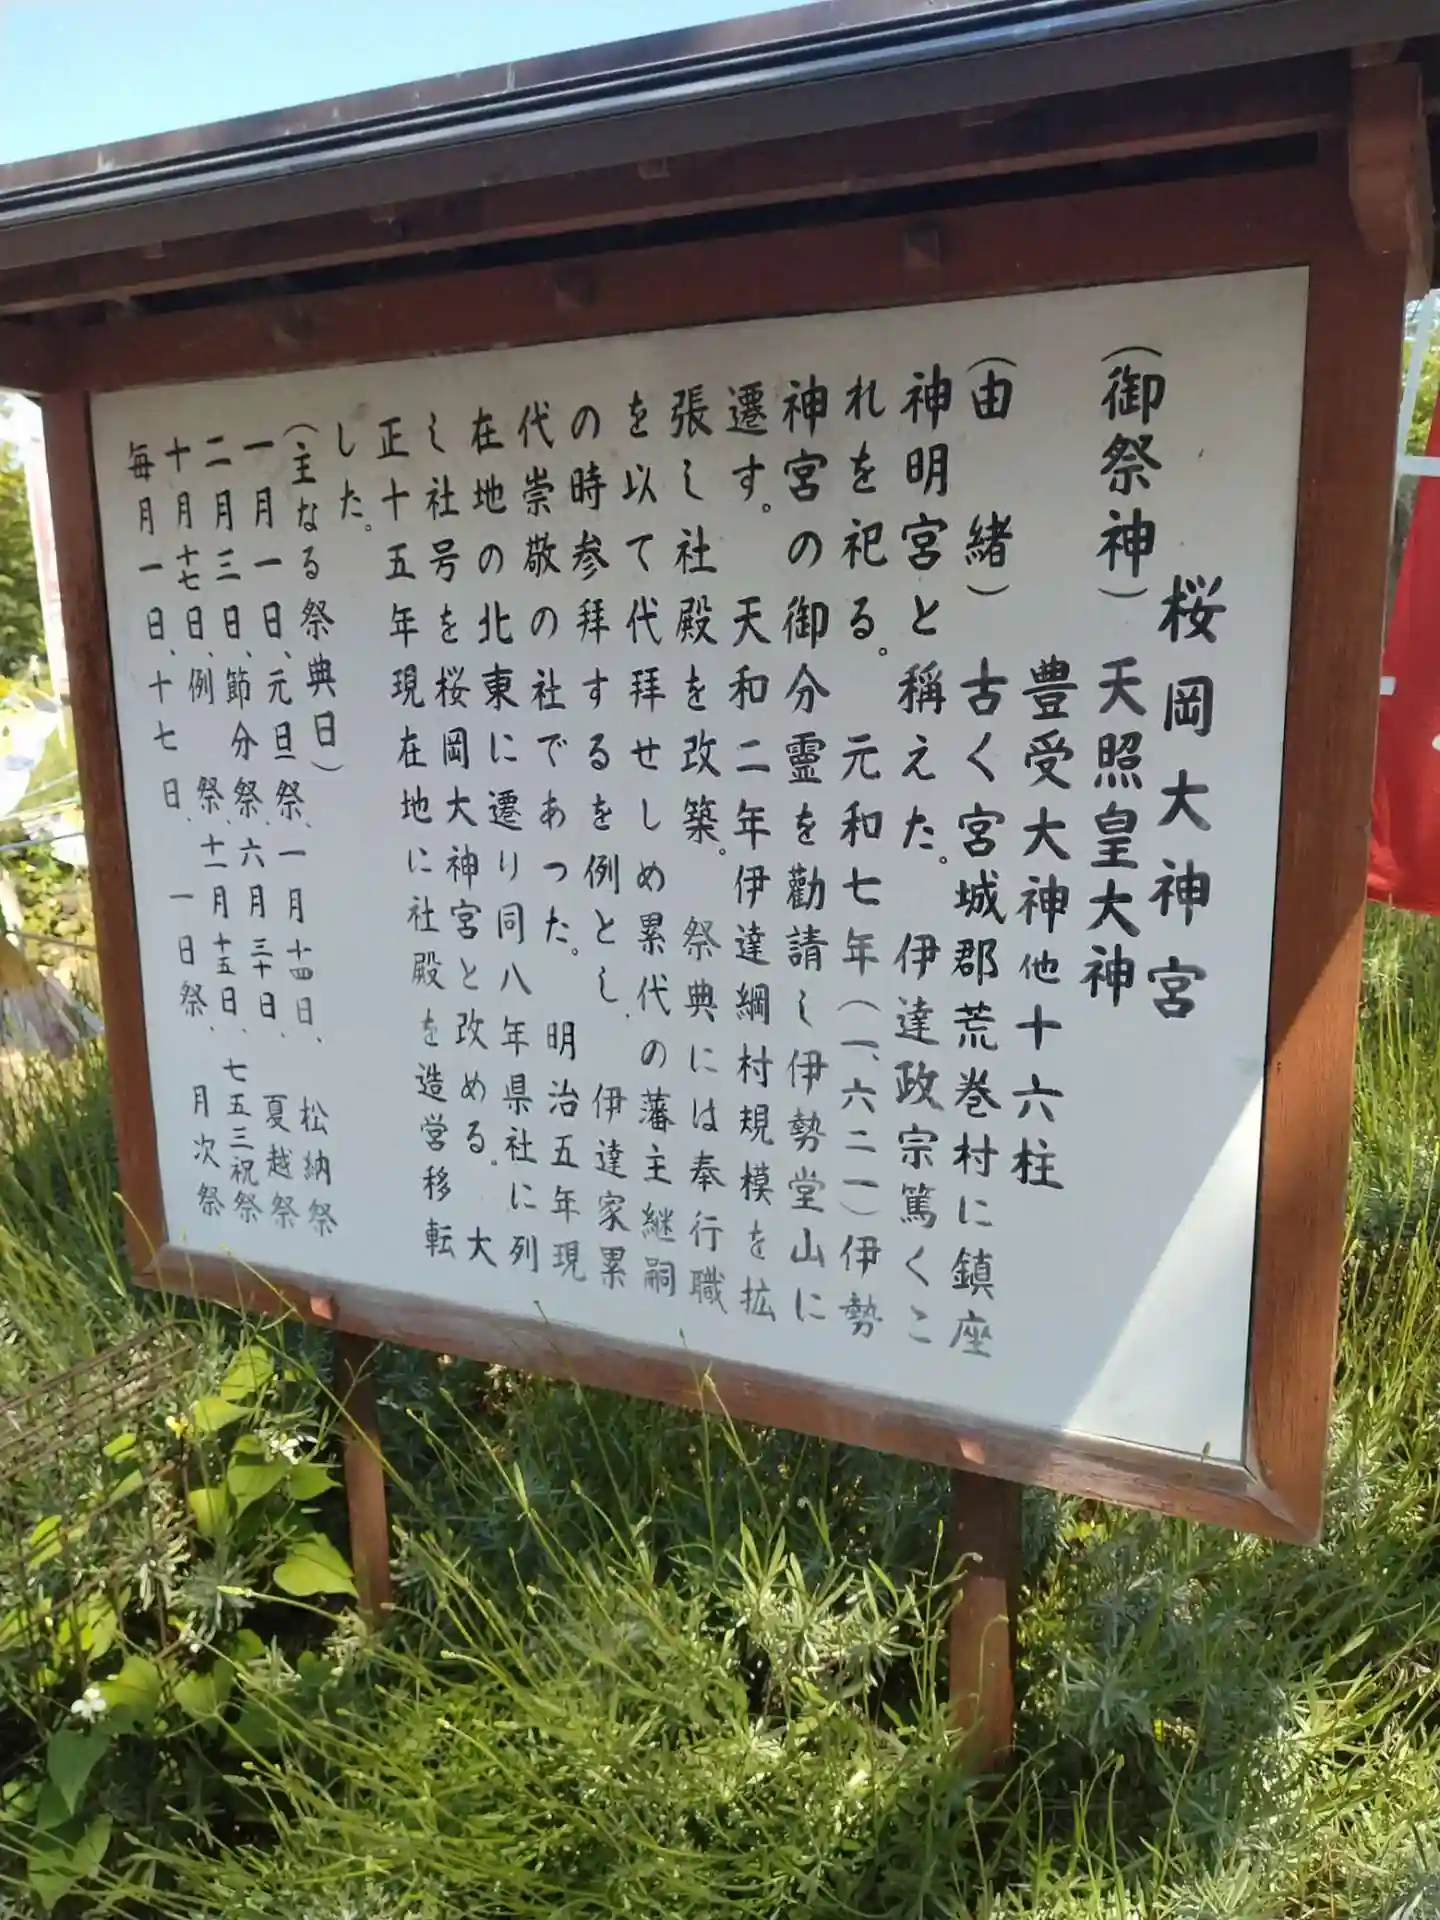 桜岡大神宮
(御祭神)天照皇大神
豊受大神他十六柱
(由 緒) 古く宮城郡荒巻村に鎮座
神明宮と稱えた。 伊達政宗篤くこ
れを祀る。 元和七年(一、六二一)伊勢
神宮の御分霊を勸請し伊勢堂山に
遷す。 天和二年伊達綱村規模を拡
張し社殿を改築。 祭典には奉行職
を以て代拝せしめ累代の藩主継嗣
の時参拝するを例とし、 伊達家累
代崇敬の社であった。 明治五年現
在地の北東に遷り同八年県社に列
し社号を桜岡大神宮と改める。大
正十五年現在地に社殿を造営移転
した。
(主なる祭典日)
一月一日、元旦祭、一月十四日、 松納祭
二月三日、節分祭、六月三十日、 夏越祭
十月十七日、例 祭、十一月十五日、七五三祝祭
毎月一日、十七日、 一日祭、 月次祭